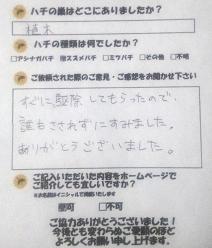 ハチの巣はどこにありましたか?
植木
ハチの種類は何でしたか?
□アシナガバチ ☑スズメバチ □ミツバチ □その他 □不明
ご依頼された際のご意見・ご感想をお聞かせ下さい
すぐに駆除してもらったので、
誰もさされずにすみました。
ありがとうございました。
ご記入いただいた内容をホームページで
ご紹介しても宜しいですか?
※お名前はイニシャルで掲載いたします
☑可 □不可
ご協力ありがとうございました!
今後とも変わらぬご愛顧のほど
よろしくお願い申し上げます。